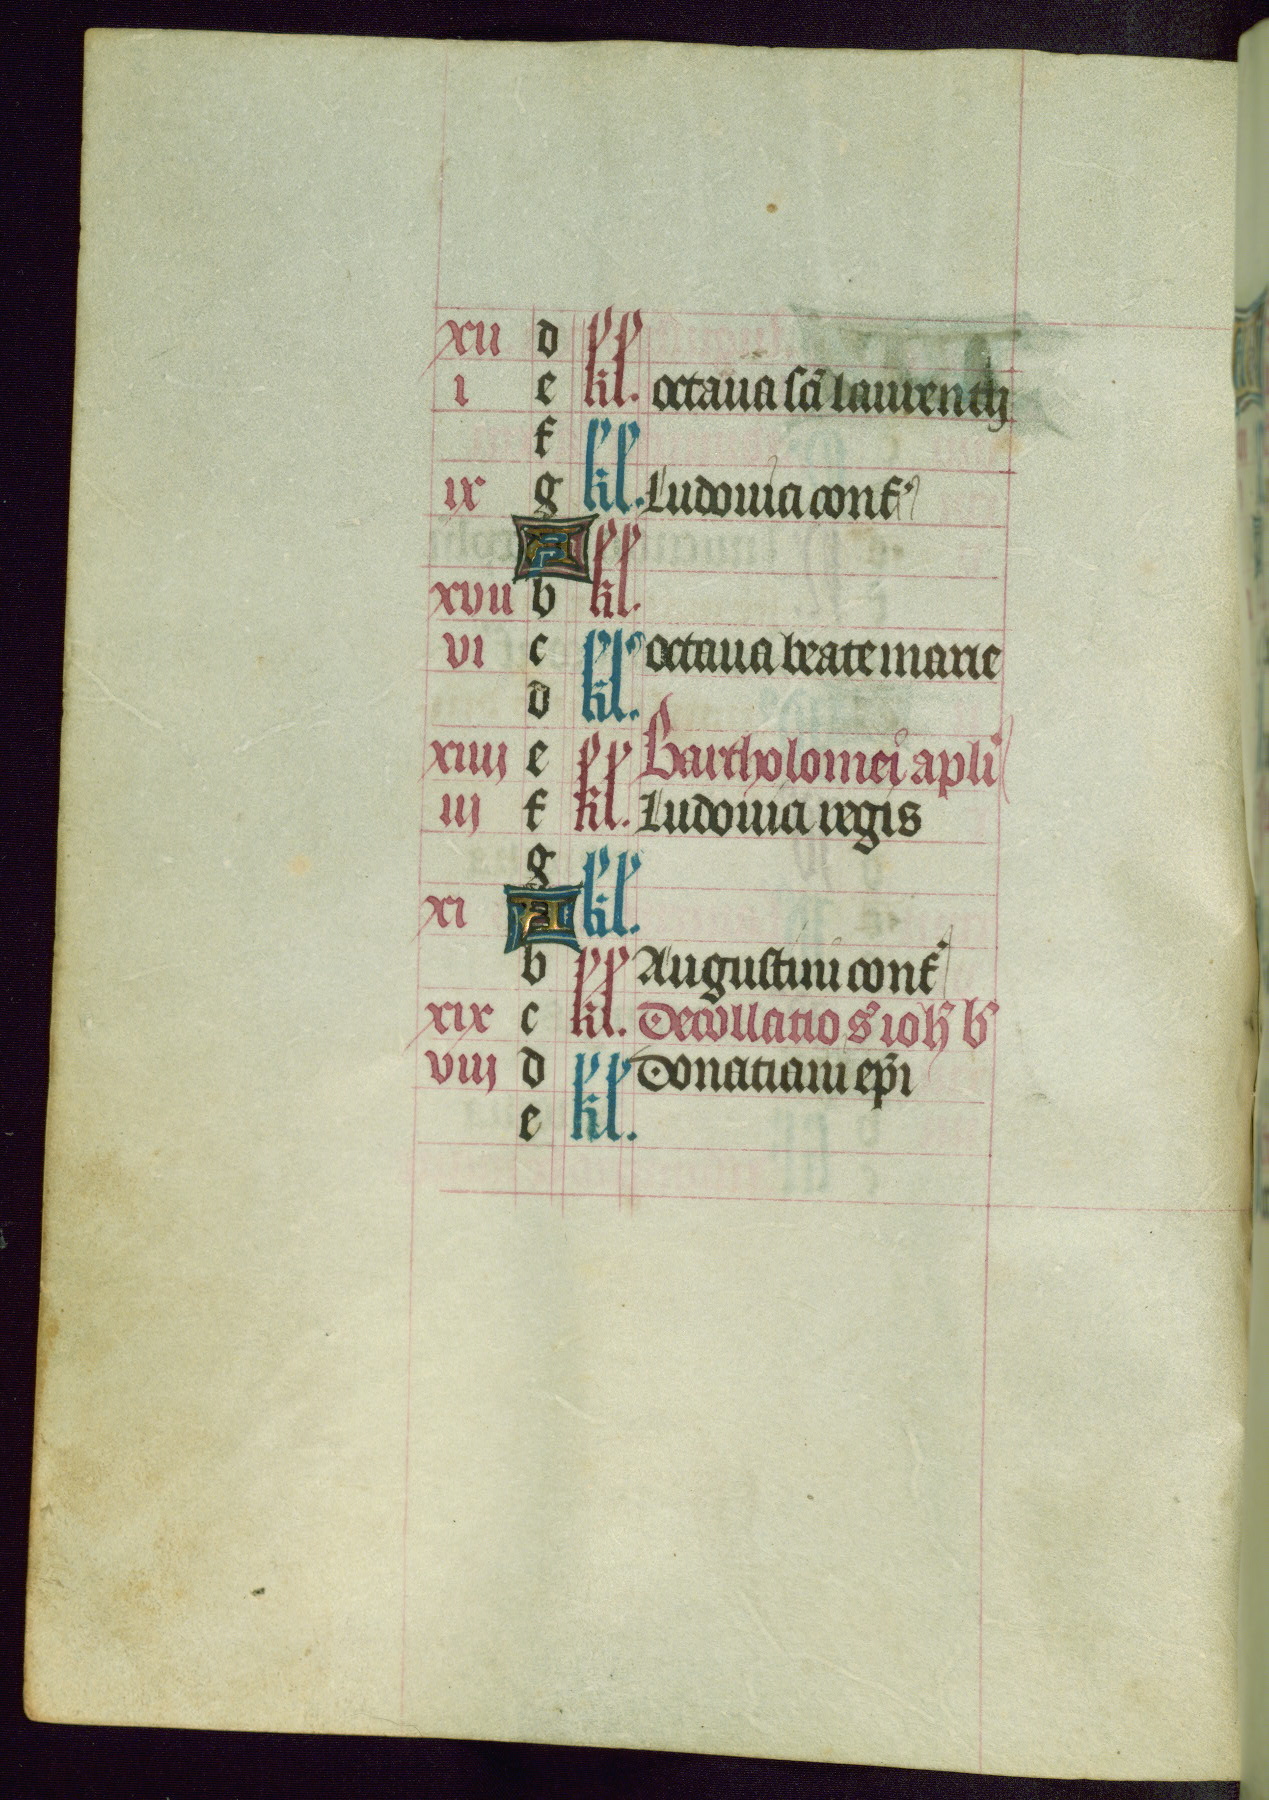 xii d
i e kl. octaua sci laurentij
f
ix g kl. Ludouici conf
A
xvii b kl.
vi c octaua beate marie
d kl.
xiiij e Bartholomei apli
iij f kl. Ludouici regis
g
xi A kl.
b Augustini conf
xix c kl. Decollatio s ioh b
viij d Donatiani epi
e kl.